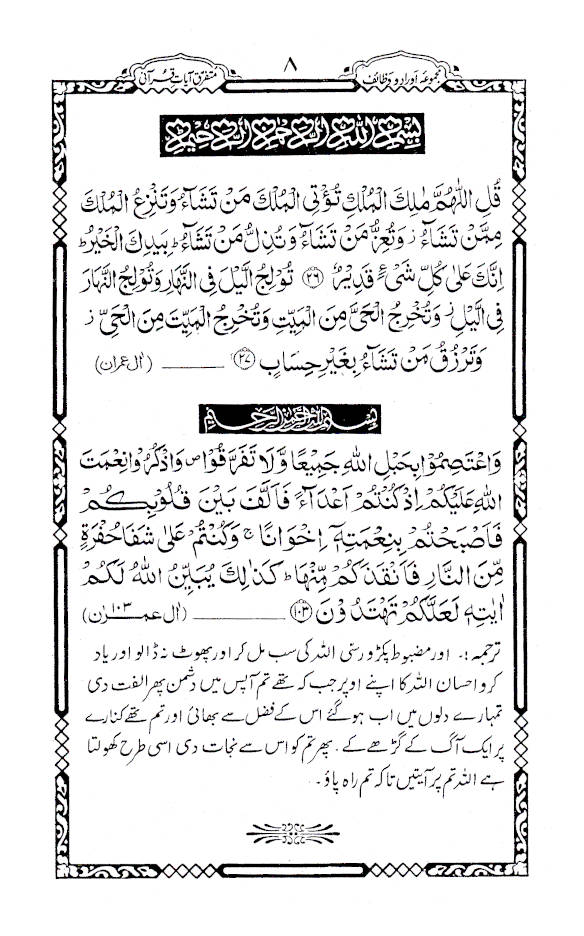 مجموعہ اوراد و وظائف ۸ متفرق آیات قرآنی
بِسْمِ اللّٰهِ الرَّحْمٰنِ الرَّحِيْمِ
قُلِ اللّٰهُمَّ مٰلِكَ الْمُلْكِ تُؤْتِی الْمُلْكَ مَنْ تَشَآءُ وَتَنْزِعُ الْمُلْكَ
مِمَّنْ تَشَآءُ ز وَتُعِزُّ مَنْ تَشَآءُ وَتُذِلُّ مَنْ تَشَآءُ ط بِيَدِكَ الْخَيْرُ ط
اِنَّكَ عَلٰى كُلِّ شَیْءٍ قَدِيْرٌ ﴿۲۶﴾ تُوْلِجُ الَّيْلَ فِی النَّهَارِ وَتُوْلِجُ النَّهَارَ
فِی الَّيْلِ ز وَتُخْرِجُ الْحَیَّ مِنَ الْمَيِّتِ وَتُخْرِجُ الْمَيِّتَ مِنَ الْحَیِّ ز
وَتَرْزُقُ مَنْ تَشَآءُ بِغَيْرِ حِسَابٍ ﴿۲۷﴾ ـــــــ (اٰل عمران)
بِسْمِ اللّٰهِ الرَّحْمٰنِ الرَّحِيْمِ
وَاعْتَصِمُوْا بِحَبْلِ اللّٰهِ جَمِيْعًا وَّلَا تَفَرَّقُوْا ص وَاذْكُرُوْا نِعْمَتَ
اللّٰهِ عَلَيْكُمْ اِذْ كُنْتُمْ اَعْدَآءً فَاَلَّفَ بَيْنَ قُلُوْبِكُمْ
فَاَصْبَحْتُمْ بِنِعْمَتِهٖٓ اِخْوَانًا ج وَكُنْتُمْ عَلٰى شَفَا حُفْرَةٍ
مِّنَ النَّارِ فَاَنْقَذَكُمْ مِّنْهَا ط كَذٰلِكَ يُبَيِّنُ اللّٰهُ لَكُمْ
اٰيٰتِهٖ لَعَلَّكُمْ تَهْتَدُوْنَ ﴿۱۰۳﴾ ـــــــ (اٰل عمرٰن ۱۰۳)
ترجمہ :۔ اور مضبوط پکڑو رسی اللہ کی سب مل کر اور پھوٹ نہ ڈالو اور یاد
کرو احسان اللہ کا اپنے اوپر جب کہ تھے تم آپس میں دشمن پھر الفت دی
تمہارے دلوں میں اب ہو گئے اس کے فضل سے بھائی اور تم تھے کنارے
پر ایک آگ کے گڑھے کے ۔ پھر تم کو اس سے نجات دی اسی طرح کھولتا
ہے اللہ تم پر آیتیں تاکہ تم راہ پاؤ ۔